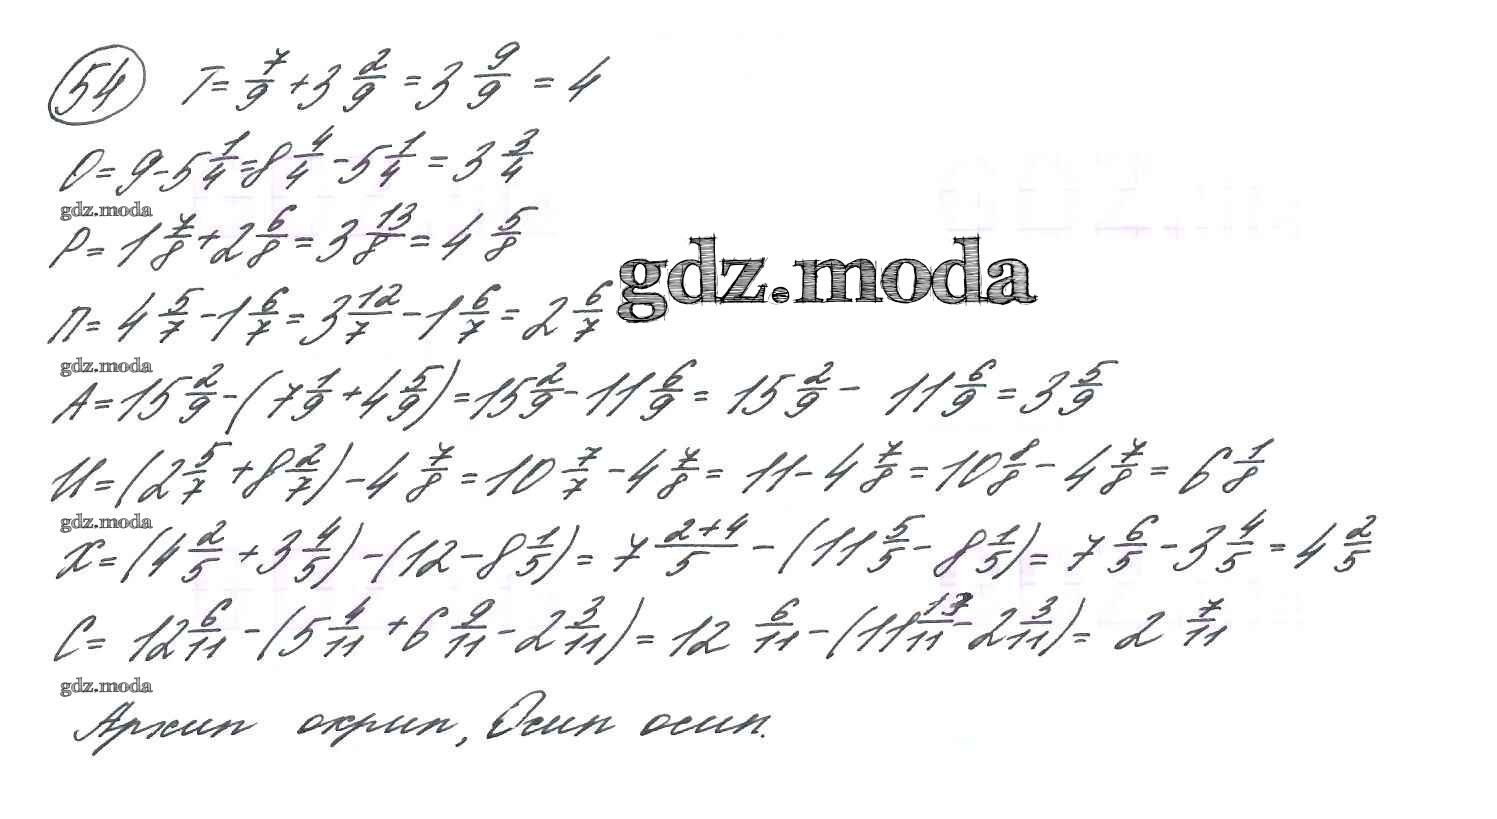 54 Т= 7/9 + 3 2/9 = 3 9/9 = 4
О= 9 - 5 1/4 = 8 4/4 - 5 1/4 = 3 3/4
gdz.moda
Р= 1 7/8 + 2 6/8 = 3 13/8 = 4 5/8
gdz.moda
П= 4 5/7 - 1 6/7 = 3 12/7 - 1 6/7 = 2 6/7
gdz.moda
А= 15 2/9 - (7 1/9 + 4 5/9) = 15 2/9 - 11 6/9 = 15 2/9 - 11 6/9 = 3 5/9
И= (2 5/7 + 8 2/7) - 4 7/8 = 10 7/7 - 4 7/8 = 11 - 4 7/8 = 10 8/8 - 4 7/8 = 6 1/8
gdz.moda
Х= (4 2/5 + 3 4/5) - (12 - 8 1/5) = 7 2+4/5 - (11 5/5 - 8 1/5) = 7 6/5 - 3 4/5 = 4 2/5
С= 12 6/11 - (5 4/11 + 6 9/11 - 2 3/11) = 12 6/11 - (11 13/11 - 2 3/11) = 2 7/11
gdz.moda
Архип охрип, Осип осип.